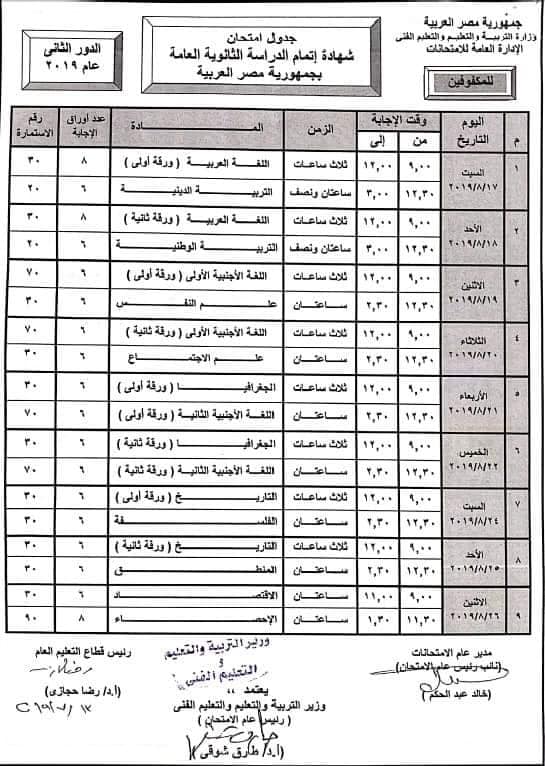 جمهورية مصر العربية
وزارة التربية والتعليم والتعليم الفنى
الإدارة العامة للامتحانات
للمكفوفين
جدول امتحان
شهادة إتمام الدراسة الثانوية العامة
بجمهورية مصر العربية
الدور الثانى
عام ٢٠١٩
م اليوم التاريخ وقت الإجابة من إلى الزمن المــادة عدد أوراق الإجابة رقم الاستمارة
١ السبت ٢٠١٩/٨/١٧ ٩,٠٠ ١٢,٠٠ ثلاث ساعات اللغة العربية ( ورقة أولى ) ٨ ٣٠
١٢,٣٠ ٣,٠٠ ساعتان ونصف التربية الدينية ٦ ٢٠
٢ الأحد ٢٠١٩/٨/١٨ ٩,٠٠ ١٢,٠٠ ثلاث ساعات اللغة العربية ( ورقة ثانية ) ٨ ٣٠
١٢,٣٠ ٣,٠٠ ساعتان ونصف التربية الوطنية ٦ ٢٠
٣ الاثنين ٢٠١٩/٨/١٩ ٩,٠٠ ١٢,٠٠ ثلاث ساعات اللغة الأجنبية الأولى ( ورقة أولى ) ٦ ٧٠
١٢,٣٠ ٢,٣٠ ساعتان علم النفس ٦ ٣٠
٤ الثلاثاء ٢٠١٩/٨/٢٠ ٩,٠٠ ١٢,٠٠ ثلاث ساعات اللغة الأجنبية الأولى ( ورقة ثانية ) ٦ ٧٠
١٢,٣٠ ٢,٣٠ ساعتان علم الاجتماع ٦ ٣٠
٥ الأربعاء ٢٠١٩/٨/٢١ ٩,٠٠ ١٢,٠٠ ثلاث ساعات الجغرافيا ( ورقة أولى ) ٦ ٣٠
١٢,٣٠ ٢,٣٠ ساعتان اللغة الأجنبية الثانية ( ورقة أولى ) ٦ ٧٠
٦ الخميس ٢٠١٩/٨/٢٢ ٩,٠٠ ١٢,٠٠ ثلاث ساعات الجغرافيا ( ورقة ثانية ) ٦ ٣٠
١٢,٣٠ ٢,٣٠ ساعتان اللغة الأجنبية الثانية ( ورقة ثانية ) ٦ ٧٠
٧ السبت ٢٠١٩/٨/٢٤ ٩,٠٠ ١٢,٠٠ ثلاث ساعات التاريخ ( ورقة أولى ) ٦ ٣٠
١٢,٣٠ ٢,٣٠ ساعتان الفلسفة ٦ ٣٠
٨ الأحد ٢٠١٩/٨/٢٥ ٩,٠٠ ١٢,٠٠ ثلاث ساعات التاريخ ( ورقة ثانية ) ٦ ٣٠
١٢,٣٠ ٢,٣٠ ساعتان المنطق ٦ ٣٠
٩ الاثنين ٢٠١٩/٨/٢٦ ٩,٠٠ ١١,٠٠ ساعتان الاقتصاد ٦ ٣٠
١١,٣٠ ١,٣٠ ساعتان الإحصاء ٨ ٩٠
مدير عام الامتحانات
( نائب رئيس عام الامتحان )
(خالد عبد الحكم )
وزير التربية والتعليم
و
التعليم الفنى
يعتمد ،،
وزير التربية والتعليم والتعليم الفنى
( رئيس عام الامتحان )
(ا.د/ طارق شوقى )
رئيس قطاع التعليم العام
(أ.د/ رضا حجازى )